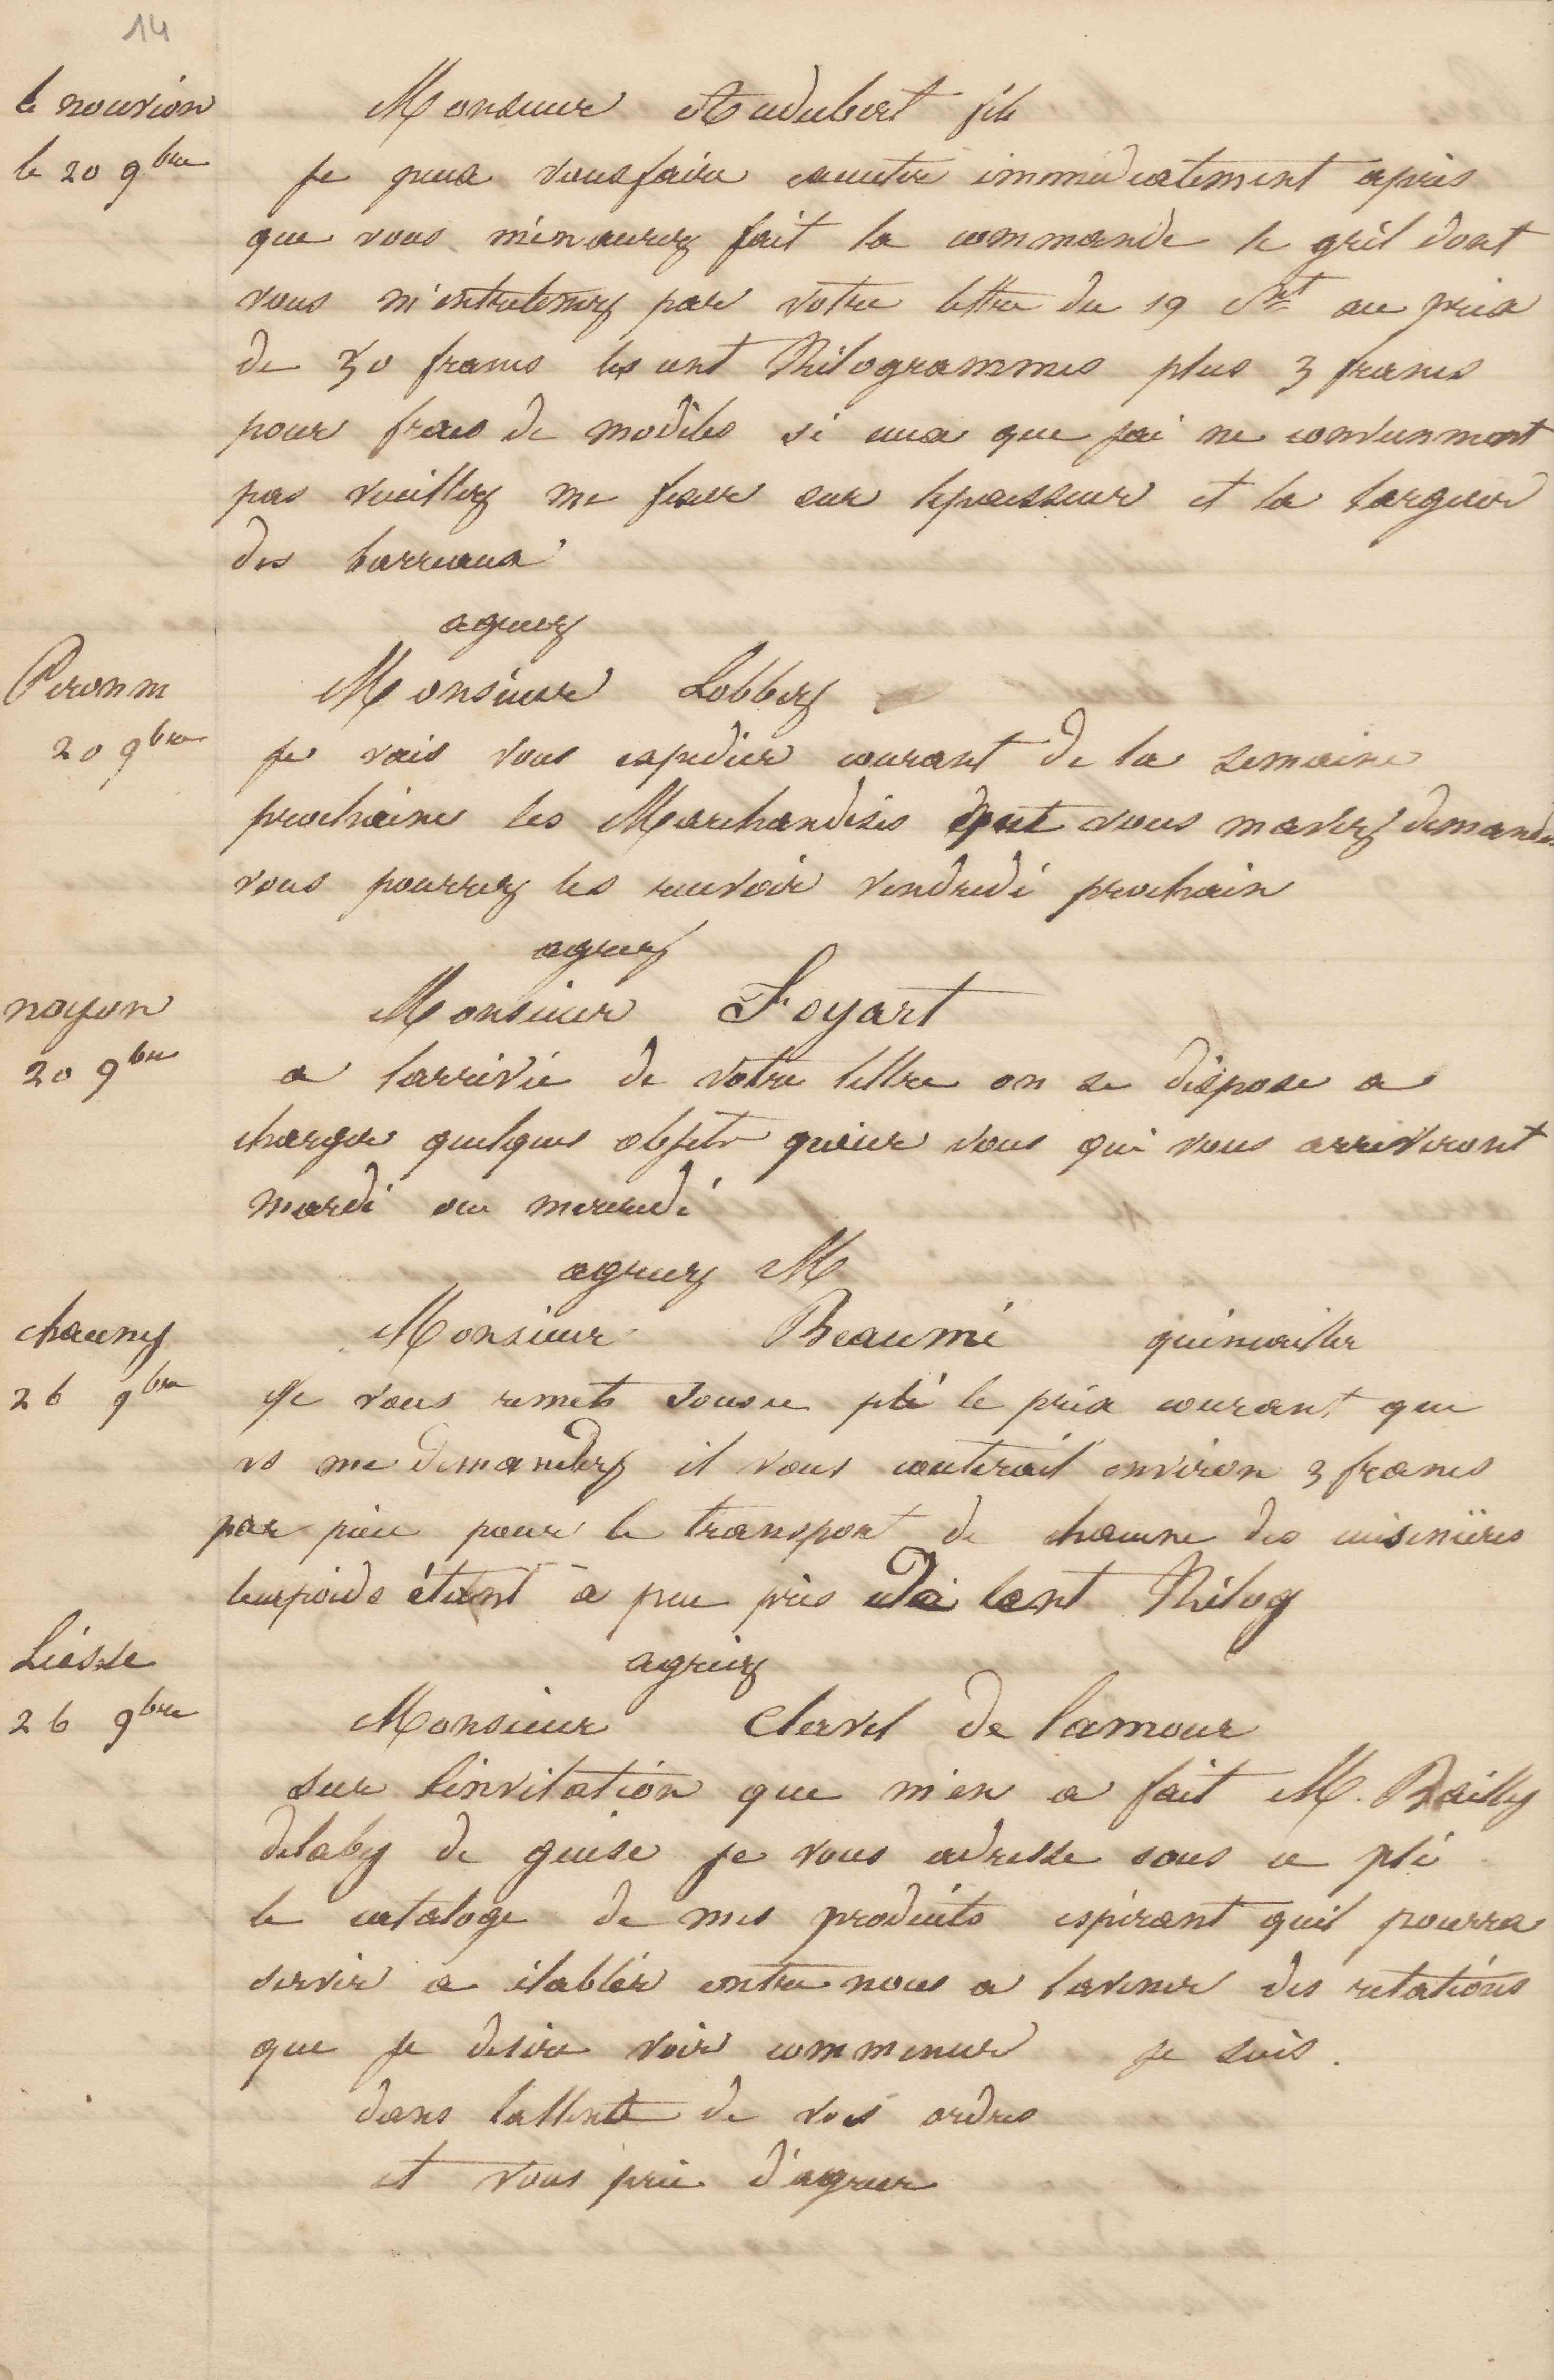 14
le nouvion
le 20 9bre
Monsieur Audubert fils
je peux vous faire executer immediatement apres
que vous m'en aurez fait la commande le gril dont
vous m'entretenez par votre lettre du 19 Ct au prix
de 50 francs les cent Kilogrammes plus 3 francs
pour frais de modeles si ceux que jai ne conviennent
pas veuillez me fixer sur lepaisseur et la largeur
des barreaux
agreez
Peronne
20 9bre
Monsieur Lobbez
je vais vous expedier courant de la semaine
prochaine les Marchandises dont vous mavez demandé
vous pourrez les recevoir vendredi prochain
agreez
noyon
20 9bre
Monsieur Foyart
a larrivée de votre lettre on se dispose a
charger quelques objets pour vous qui vous arriveront
mardi ou mercredi
agreez M
chauny
26 9bre
Monsieur Beaumé quincailler
Je vous remets sous ce pli le prix courant que
vs me demandez il vous couterait environ 3 francs
par piece pour le transport de chacune des cuisinières
leur poids étant à peu près de cent Kilog
Liesse
26 9bre
agréez
Monsieur Clervel de lamour
sur linvitation que m'en a fait M. Bailly
delaby de guise je vous adresse sous ce pli
le cataloge de mes produits espérant quil pourra
servir a établir entre nous a lavenir des relations
que je desire voir commencer je suis.
dans lattente de vos ordres
et vous prie d'agreer